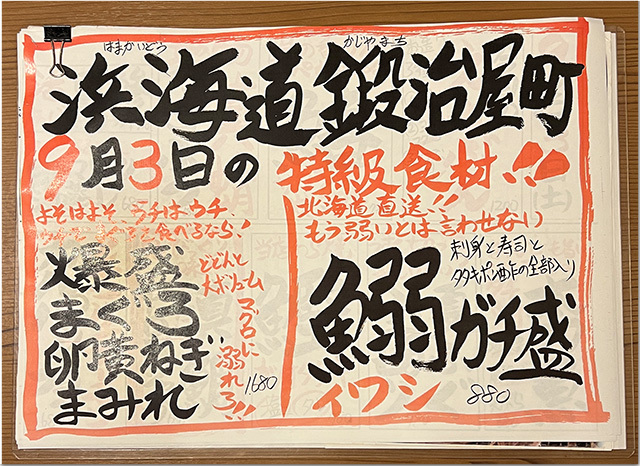 はまかいどう かじやまち
浜海道鍛冶屋町
9月3日の特級食材!!
よそはよそ、ウチはウチ、
食べるなら!
爆盛
まぐろ
卵黄ねぎ
まみれ
どどんと
大ボリューム
マグロに
溺れろ!!
1,680
北海道直送!!
もう弱いとは言わせない
刺身と寿司と
タタキポン酢の全部入り
鰯ガチ盛
イワシ
880